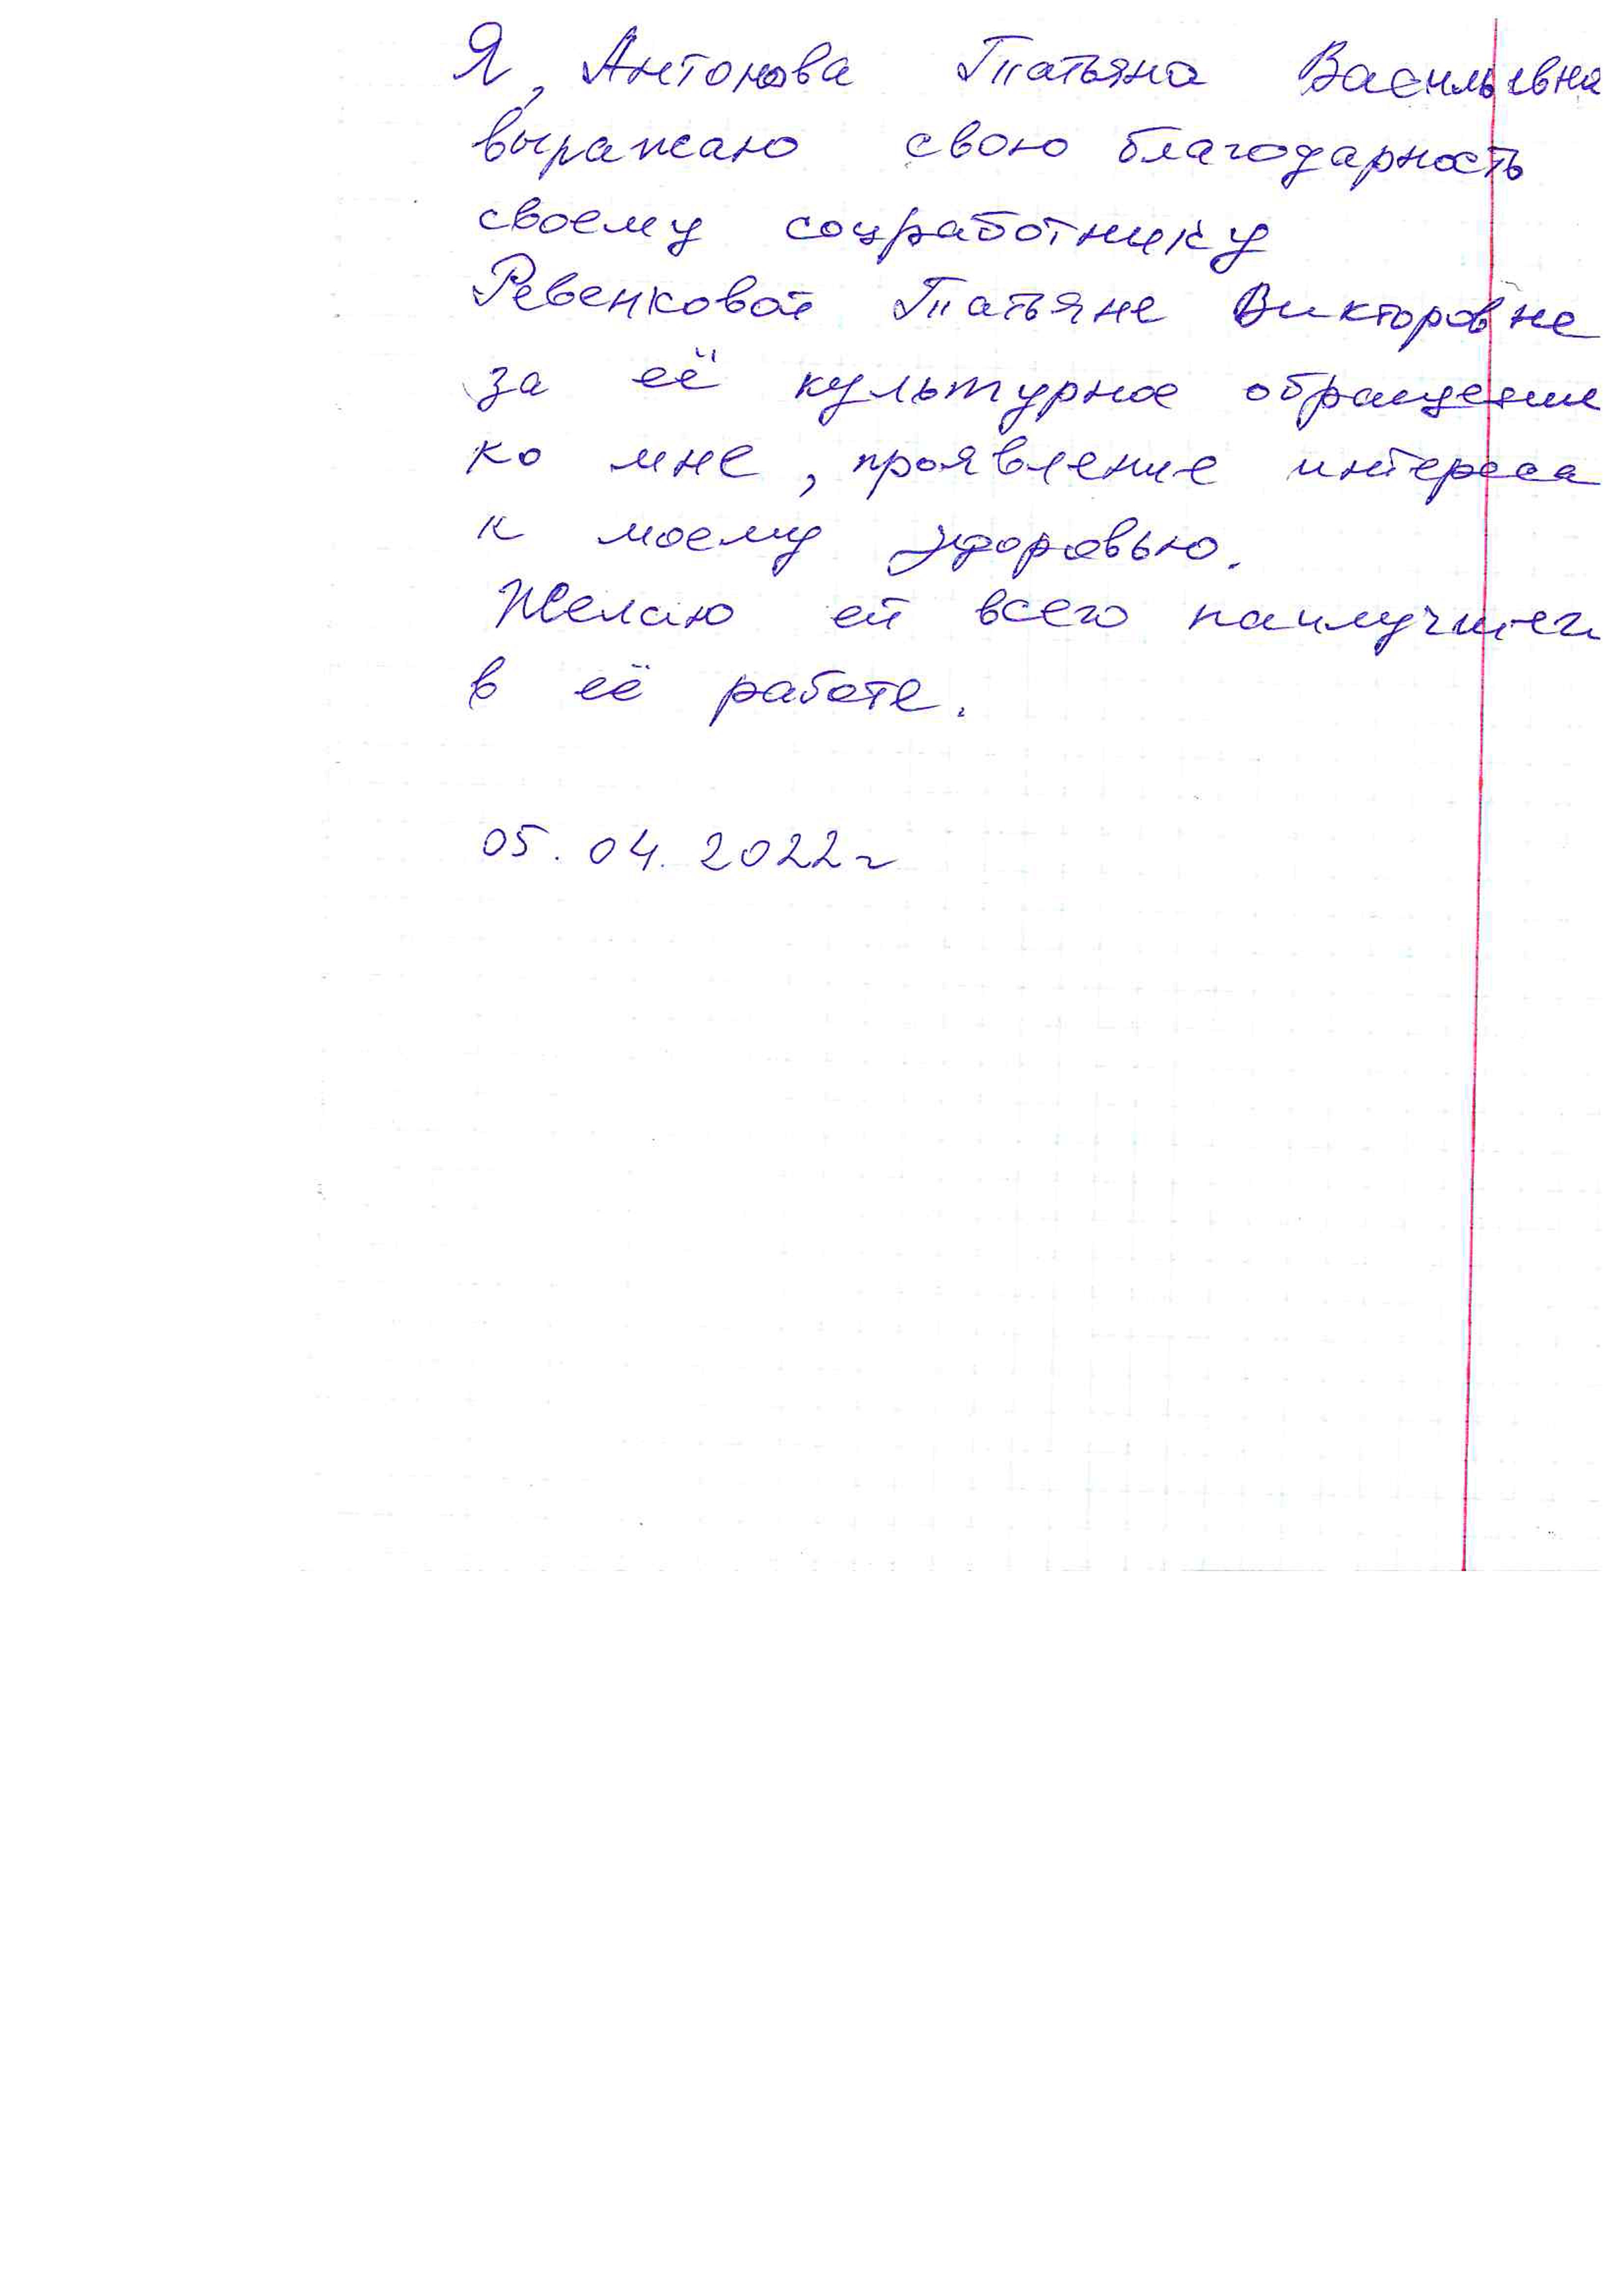 Я, Антонова Татьяна Васильевна
выражаю свою благодарность
своему соцработнику
Ревенковой Татьяне Викторовне
за её культурное обращение
ко мне, проявление интереса
к моему здоровью.
Желаю ей всего наилучшего
в её работе.
05.04.2022г